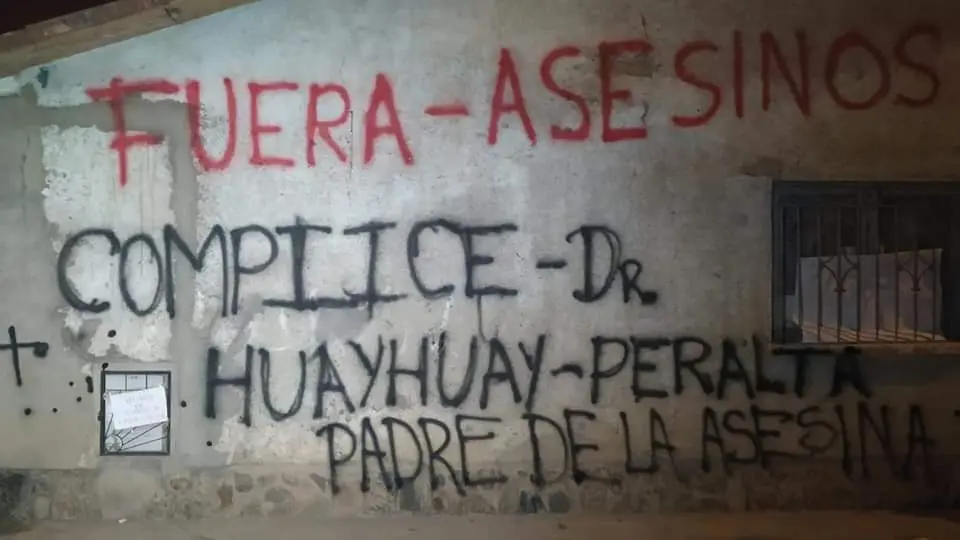 FUERA-ASESINOS
COMPLICE-DR
HUAYHUAY-PERALTA
PADRE DE LA ASESINA